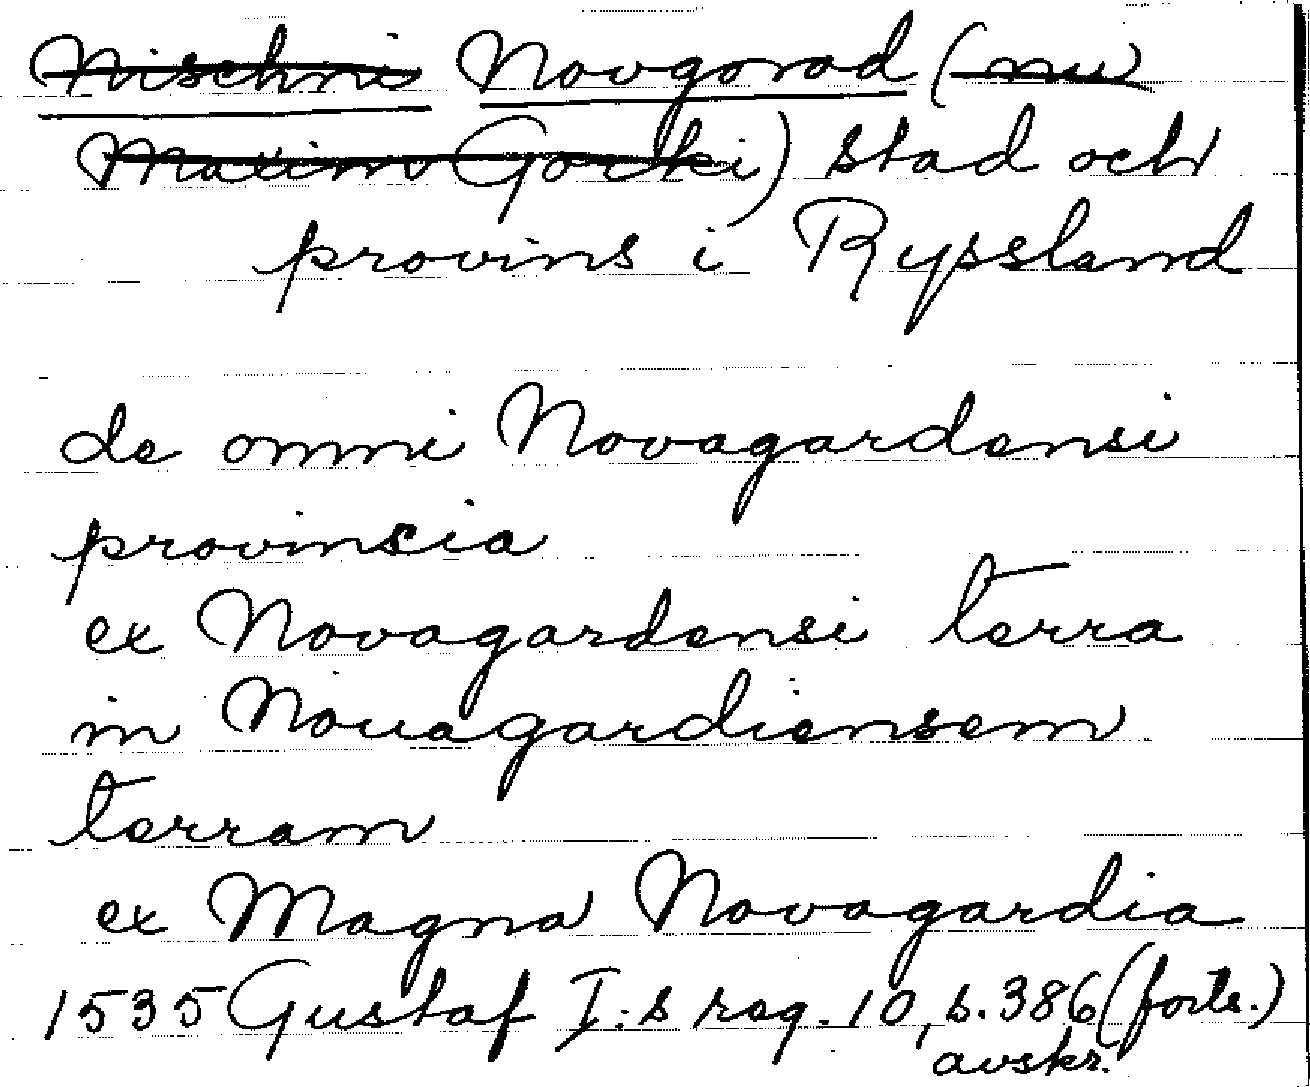 Nischni Novgorod (nu
Maxim Gorki) stad och
provins i Ryssland
de omni Novagardensi
provincia
ex Novagardensi terra
in Nouagardiensem
terram
ex Magna Novagardia
1535 Gustaf I:s reg. 10, s. 386 (forts.)
avskr.